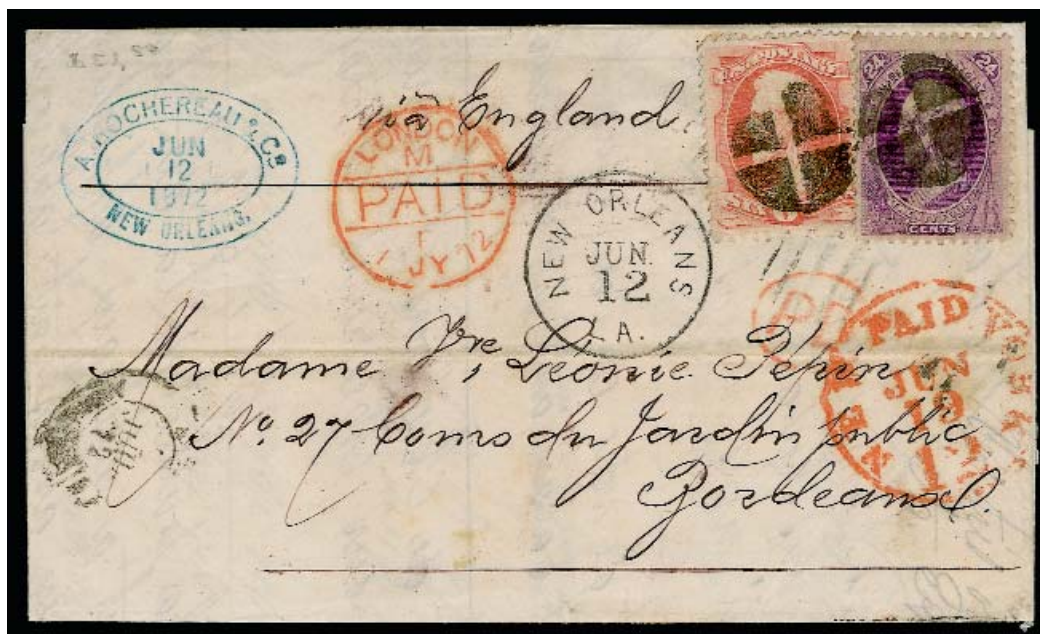 A. ROCHEREAU & Co
JUN
12
1872
NEW ORLEANS.
via England.
LONDON
M
PAID
1 JY 72
NEW ORLEANS
JUN.
12
LA.
U.S. POSTAGE
24 24
CENTS
PD
NEW YORK
PAID
JUN
19
12
Madame Vve Léonie Pepin
No. 27 Cours du Jardin public
Bordeaux.